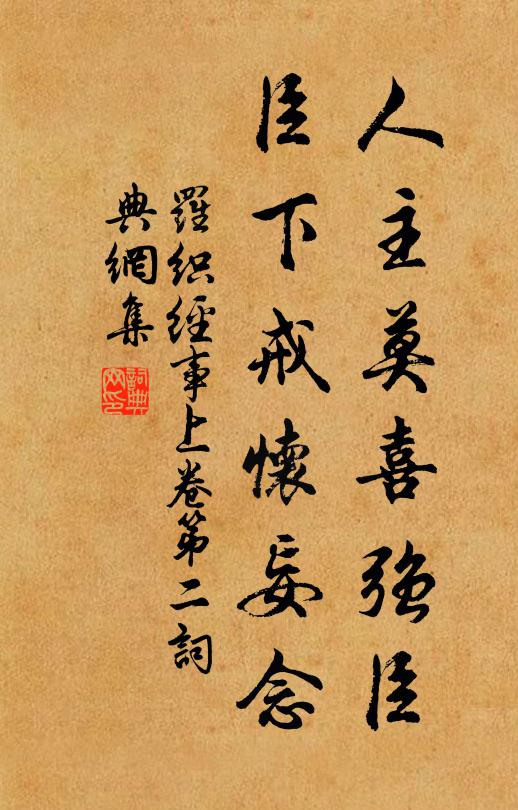 人主莫喜強臣
臣下戒懷妄念
羅織經事上卷第二詞
典網集
詞典
网印